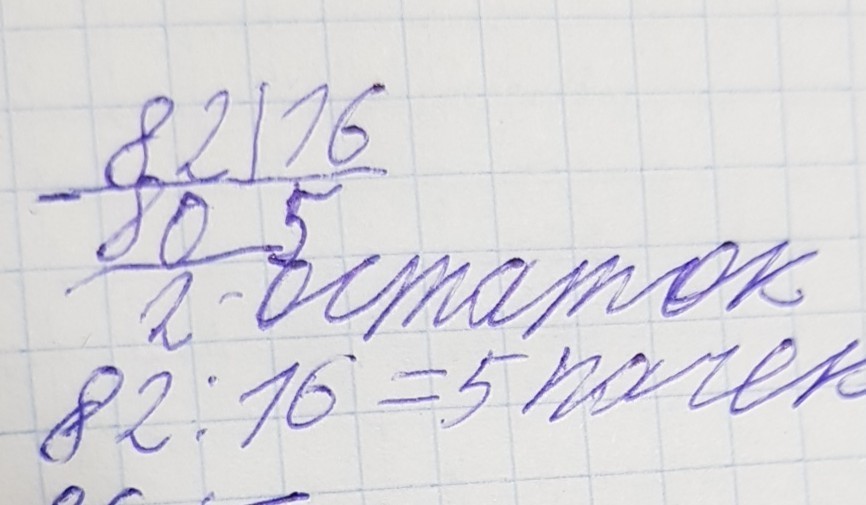 82|16
- 80 5
2 - остаток
82:16=5 пачек